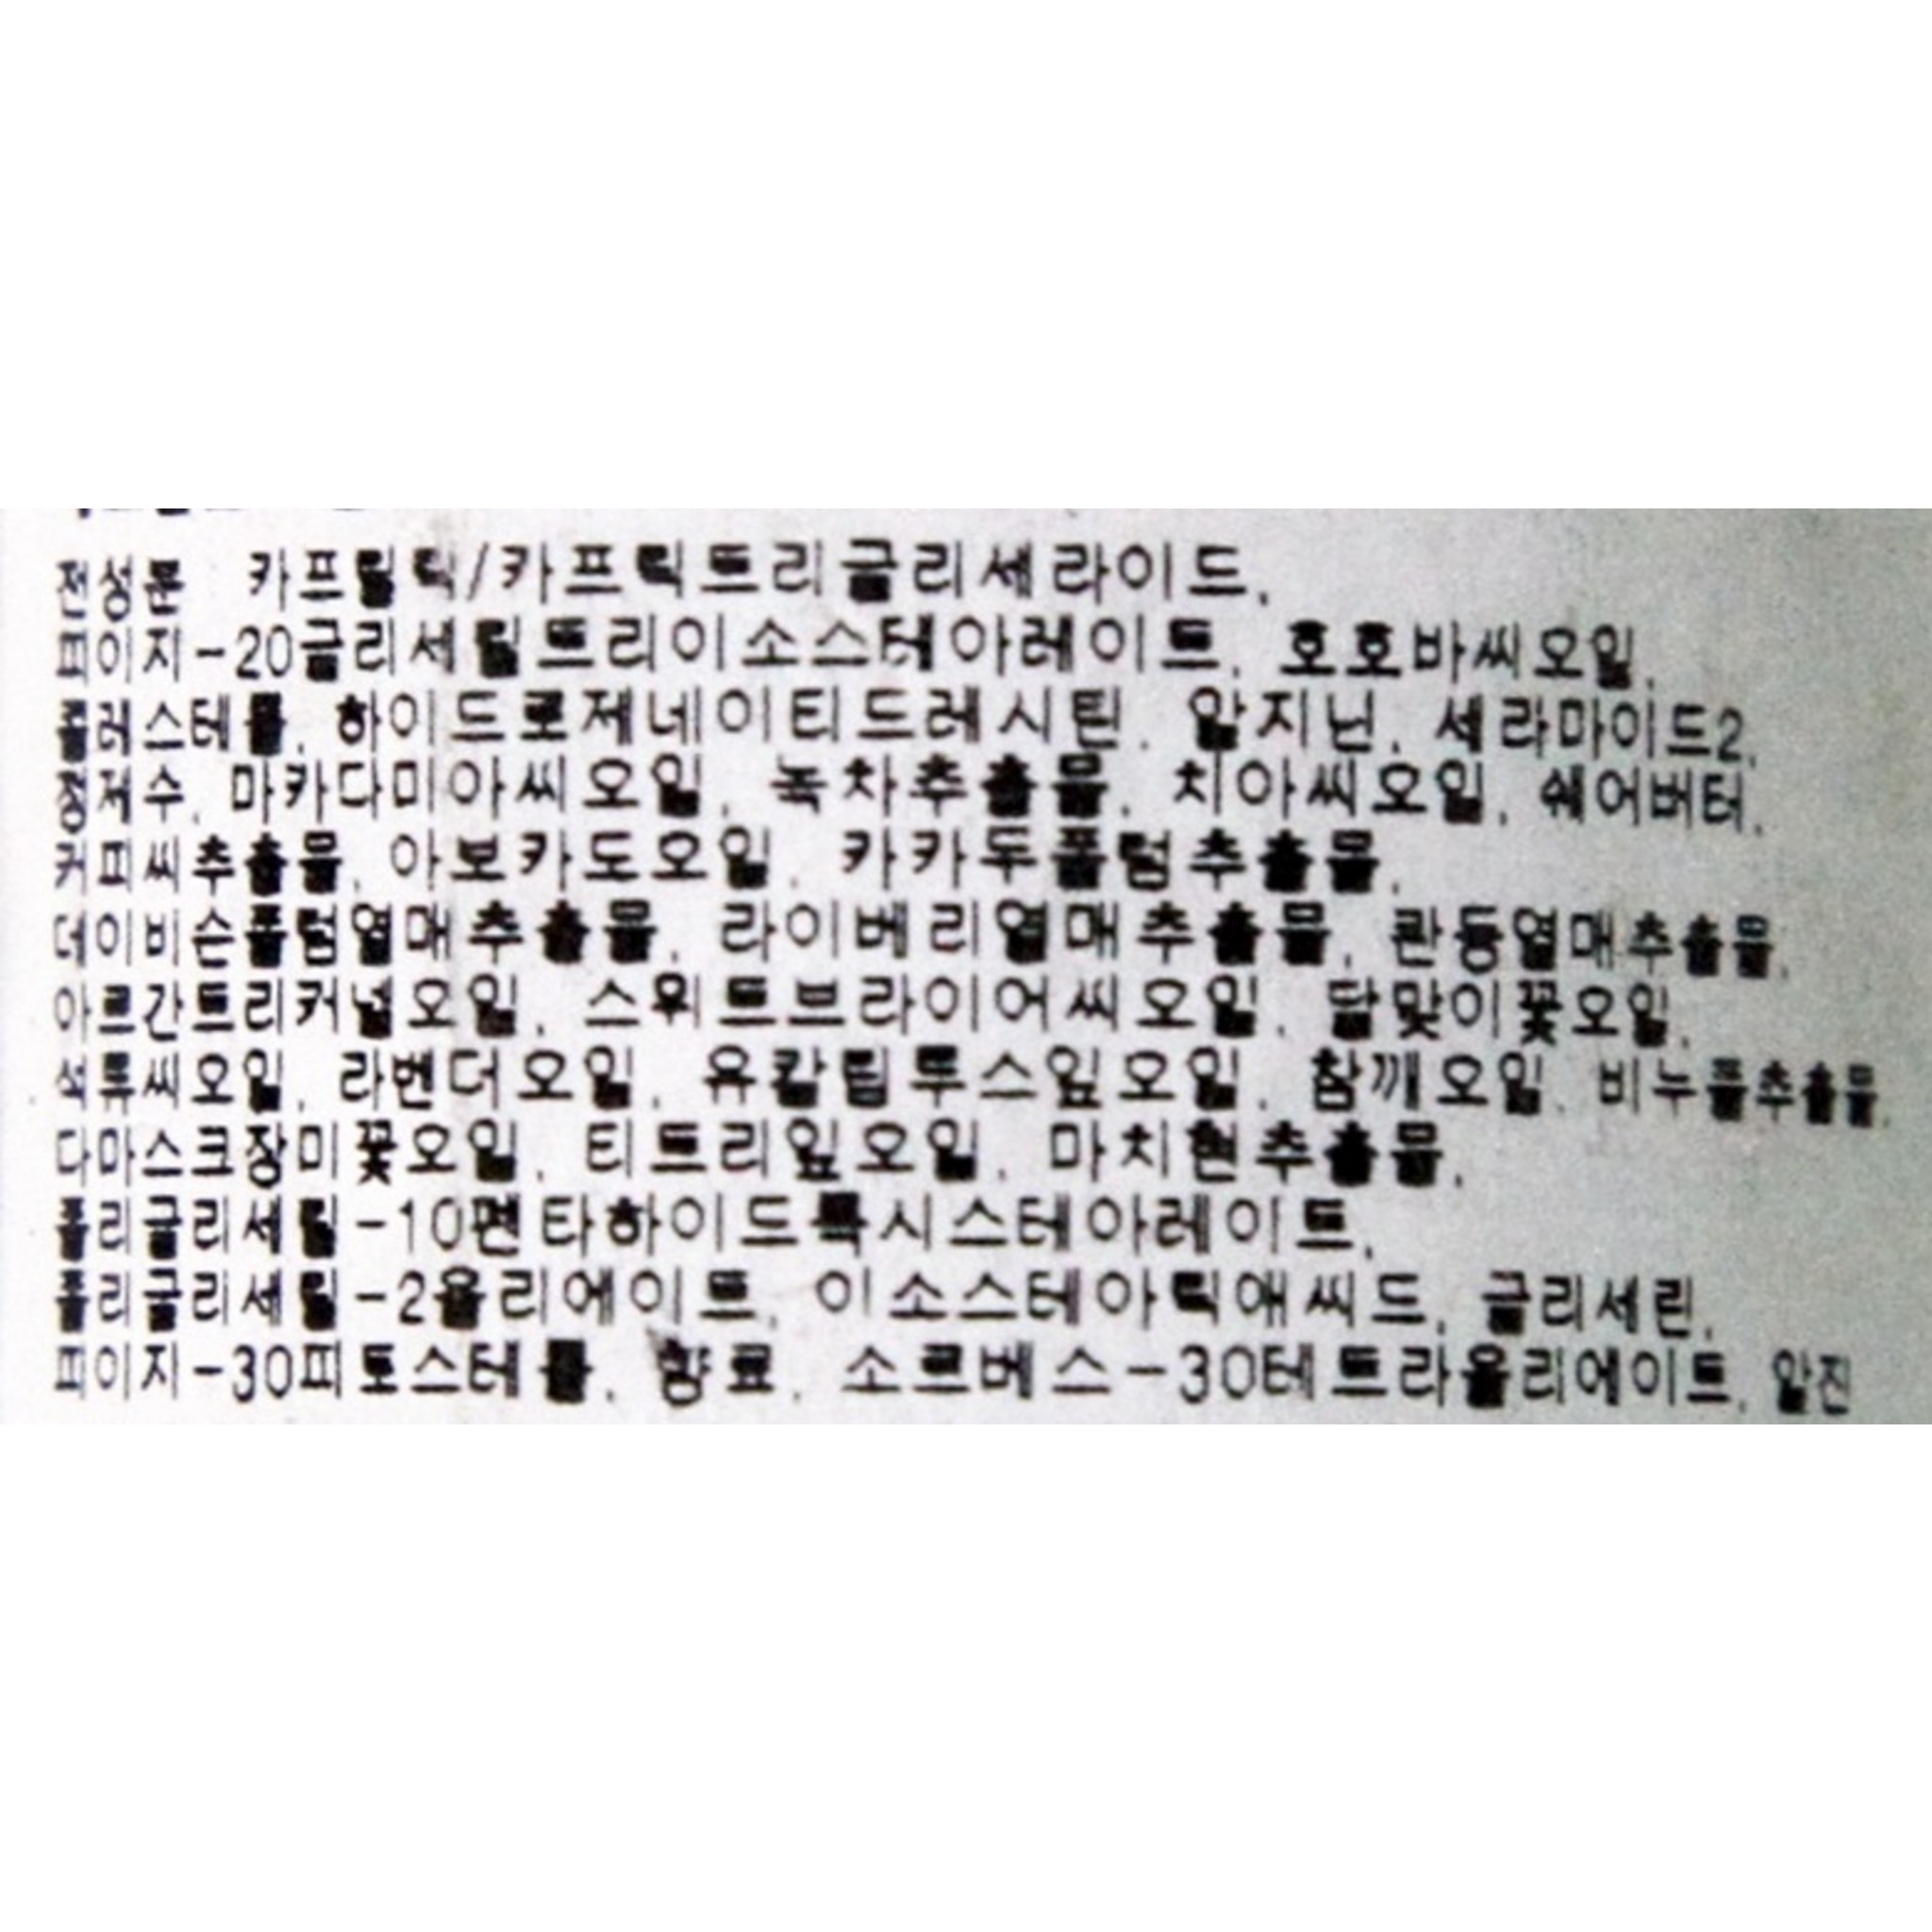 전성분 카프릴릭/카프릭트리글리세라이드,
피이지-20글리세릴트리이소스테아레이트, 호호바씨오일,
콜레스테롤, 하이드로제네이티드레시틴, 알지닌, 세라마이드2,
정제수, 마카다미아씨오일, 녹차추출물, 치아씨오일, 쉐어버터,
커피씨추출물, 아보카도오일, 카카두플럼추출물,
데이비슨플럼열매추출물, 라이베리열매추출물, 콴동열매추출물,
아르간트리커널오일, 스위트브라이어씨오일, 달맞이꽃오일,
석류씨오일, 라벤더오일, 유칼립투스잎오일, 참깨오일, 비누풀추출물,
다마스크장미꽃오일, 티트리잎오일, 마치현추출물,
폴리글리세릴-10펜타하이드록시스테아레이트,
폴리글리세릴-2올리에이트, 이소스테아릭애씨드, 글리세린,
피이지-30피토스테롤, 향료, 소르베스-30테트라올리에이트, 알진